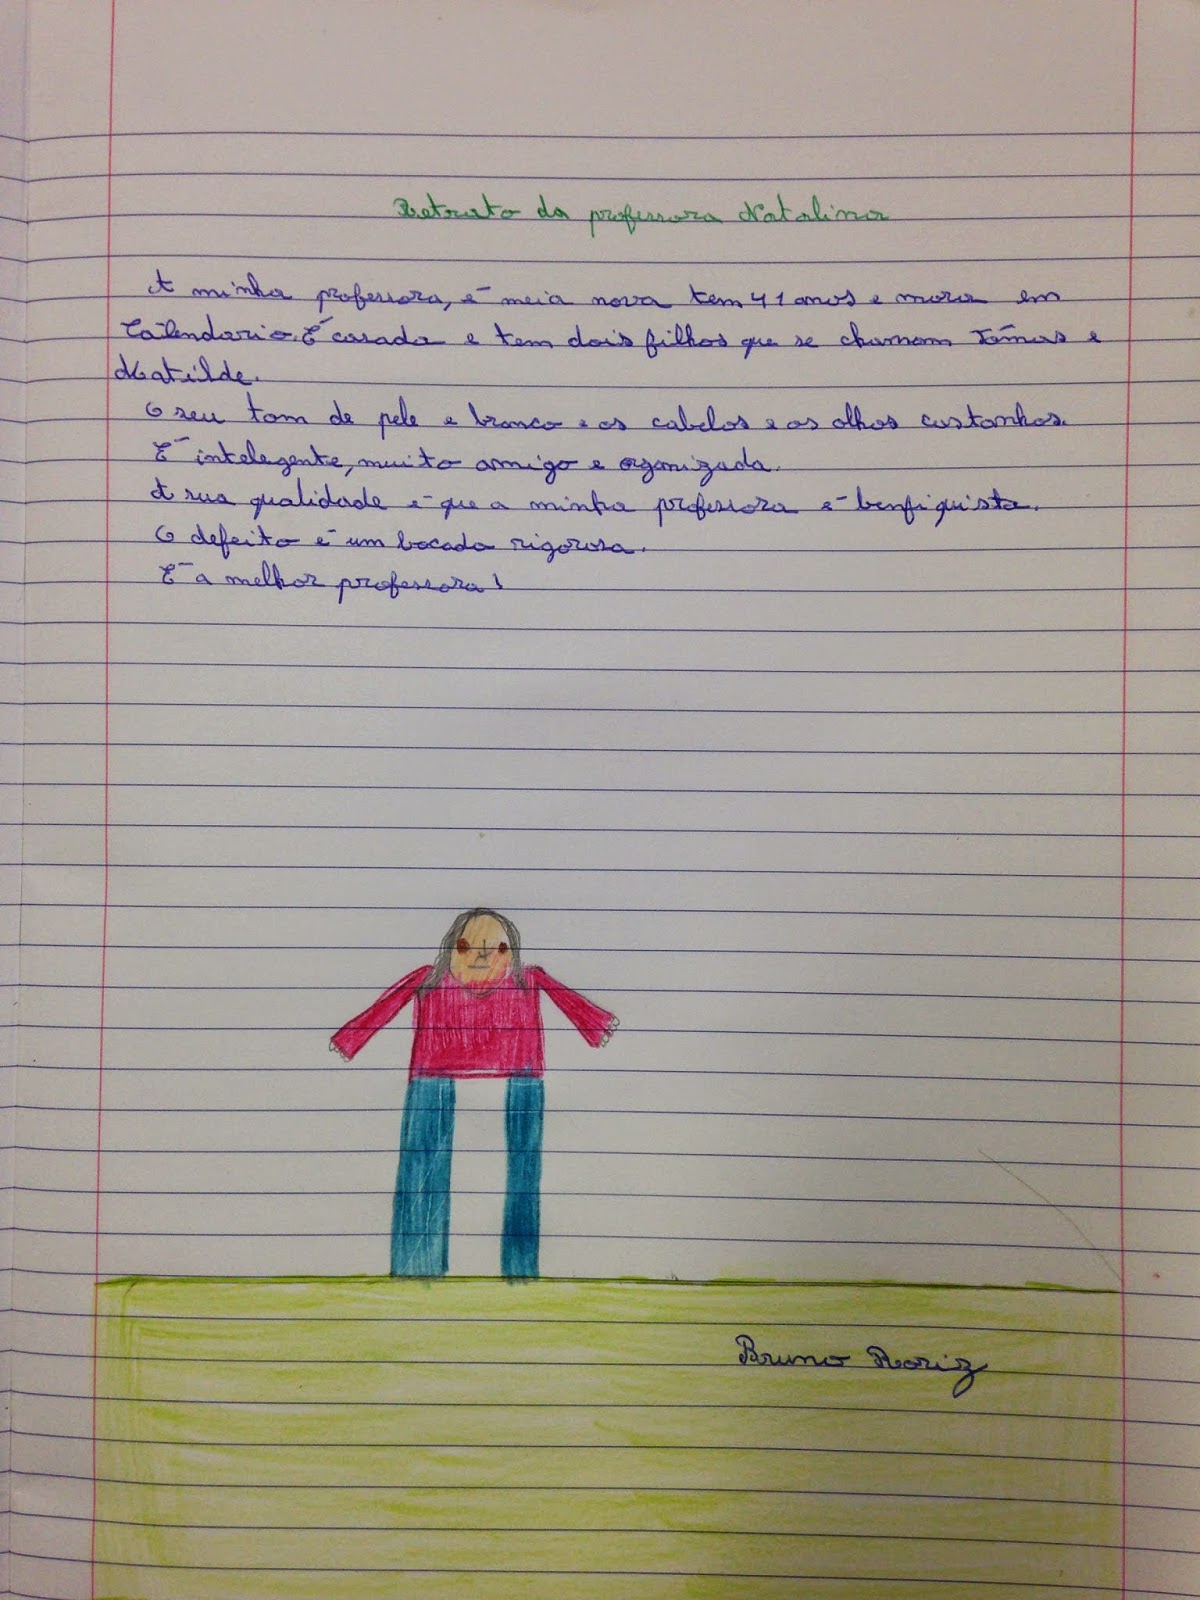 Retrato da professora Natalina
A minha professora, é meia nova tem 41 anos e mora em
Caléndario. É casada e tem dois filhos que se chamam Tómas e
Matilde.
O seu tom de pele e branco e os cabelos e os olhos castanhos.
É intelegente, muito amigo e organizada.
A sua qualidade é que a minha professora é benfiquista.
O defeito é um bocado rigorosa.
É a melhor professora!
Bruno Roriz